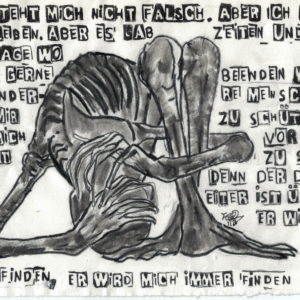 TEHT MICH NICHT FALSCH. ABER ICH
EIBEN. ABER ES GAB ZEITEN UND
AGE WO
GERNE BEENDEN
NDER- RE MENSC
MIR ZU SCHÜT
ICH VOR
T ZU S
DENN DER D
EITER IST Ü
ER W
FINDEN, ER WIRD MICH IMMER FINDEN